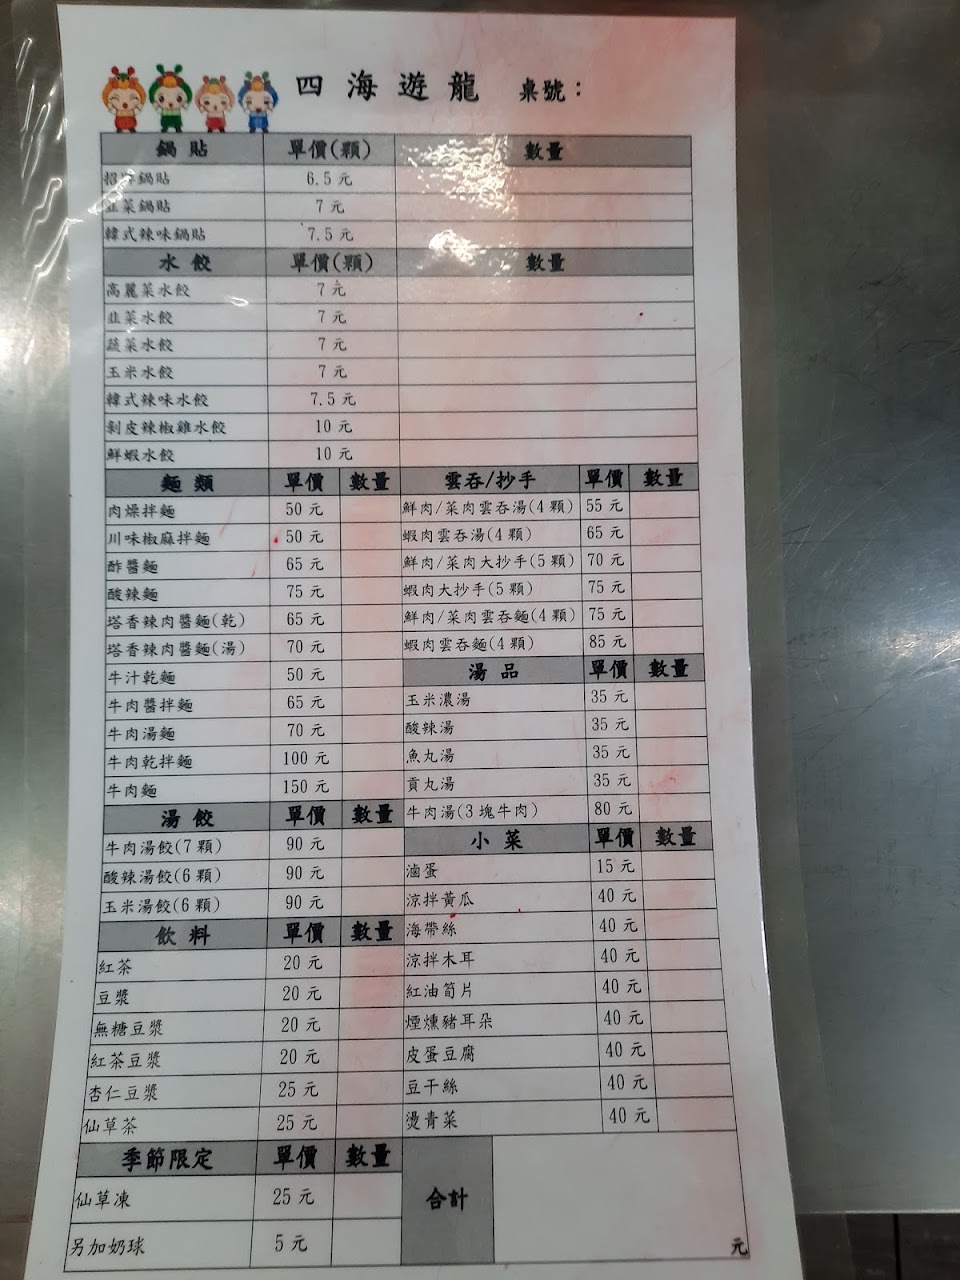 四海遊龍 桌號：
鍋貼 單價(顆) 數量
招牌鍋貼 6.5元
韭菜鍋貼 7元
韓式辣味鍋貼 7.5元
水餃 單價(顆) 數量
高麗菜水餃 7元
韭菜水餃 7元
蔬菜水餃 7元
玉米水餃 7元
韓式辣味水餃 7.5元
剝皮辣椒雞水餃 10元
鮮蝦水餃 10元
麵類 單價 數量
肉燥拌麵 50元
川味椒麻拌麵 50元
酢醬麵 65元
酸辣麵 75元
塔香辣肉醬麵(乾) 65元
塔香辣肉醬麵(湯) 70元
牛汁乾麵 50元
牛肉醬拌麵 65元
牛肉湯麵 70元
牛肉乾拌麵 100元
牛肉麵 150元
湯餃 單價 數量
牛肉湯餃(7顆) 90元
酸辣湯餃(6顆) 90元
玉米湯餃(6顆) 90元
飲料 單價 數量
紅茶 20元
豆漿 20元
無糖豆漿 20元
紅茶豆漿 20元
杏仁豆漿 25元
仙草茶 25元
季節限定 單價 數量
仙草凍 25元
另加奶球 5元
雲吞/抄手 單價 數量
鮮肉/菜肉雲吞湯(4顆) 55元
蝦肉雲吞湯(4顆) 65元
鮮肉/菜肉大抄手(5顆) 70元
蝦肉大抄手(5顆) 75元
鮮肉/菜肉雲吞麵(4顆) 75元
蝦肉雲吞麵(4顆) 85元
湯品 單價 數量
玉米濃湯 35元
酸辣湯 35元
魚丸湯 35元
貢丸湯 35元
牛肉湯(3塊牛肉) 80元
小菜 單價 數量
滷蛋 15元
涼拌黃瓜 40元
海帶絲 40元
涼拌木耳 40元
紅油筍片 40元
煙燻豬耳朵 40元
皮蛋豆腐 40元
豆干絲 40元
燙青菜 40元
合計 元